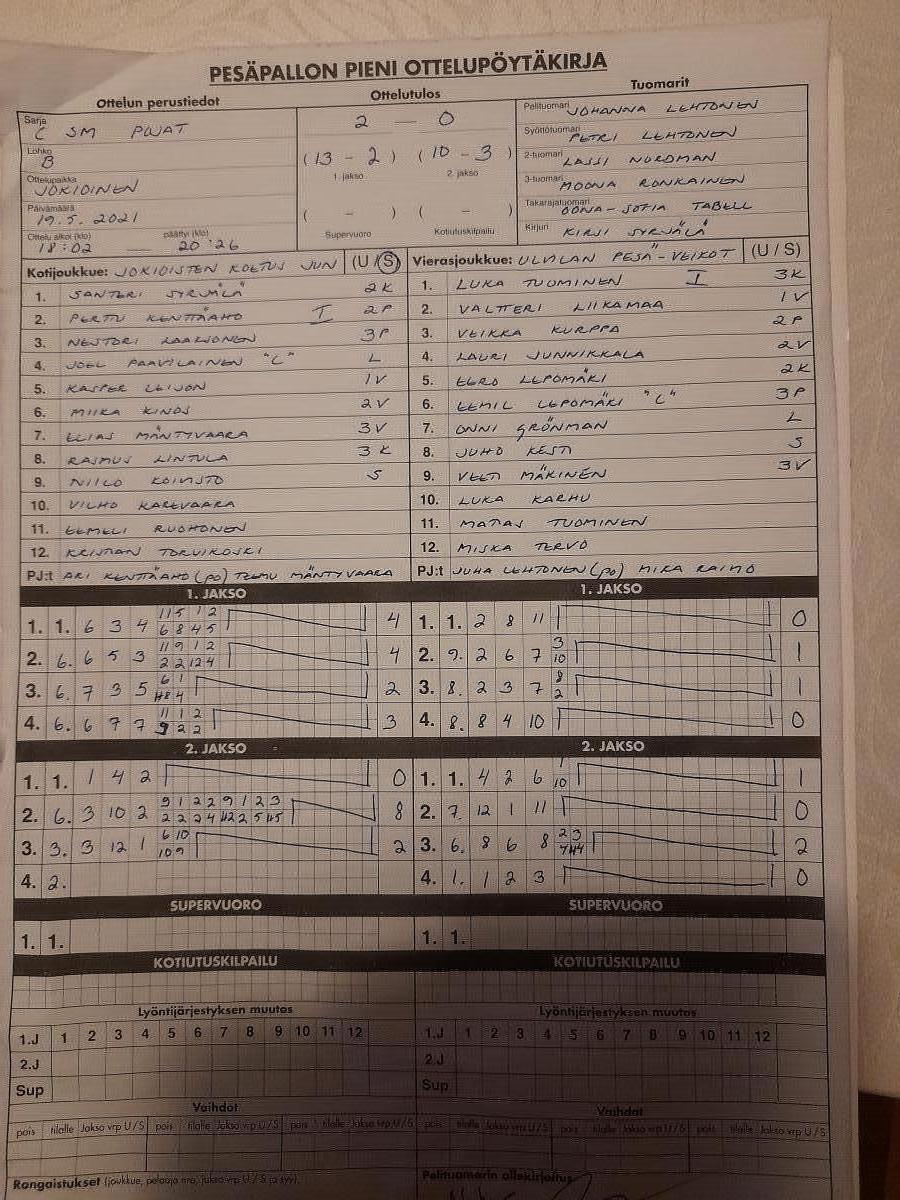 PESÄPALLON PIENI OTTELUPÖYTÄKIRJA
Ottelun perustiedot
Ottelutulos
Tuomarit
Sarja C SM POJAT
Lohko B
Ottelupaikka JOKIOINEN
Päivämäärä 19.5.2021
Ottelu alkoi (klo) 18:02 päättyi (klo) 20:26
2 — 0
(13 - 2) (10 - 3)
1. jakso 2. jakso
( - ) ( - )
Supervuoro Kotiutuskilpailu
Pelituomari JOHANNA LEHTONEN
Syöttötuomari PETRI LEHTONEN
2-tuomari LASSI NORDMAN
3-tuomari MOONA RONKAINEN
Takarajatuomari OONA-SOFIA TABELL
Kirjuri KIRSI SYRJÄLÄ
Kotijoukkue: JOKIOISTEN KOETUS JUN (U/S)
1. SANTERI SYRJÄLÄ 2K
2. PERTTU KENTTÄAHO I 2P
3. NESTORI 3P
4. JOEL PAAVILAINEN "C" L
5. KASPER LEIJON 1V
6. MIIKA KINOS 2V
7. ELIAS MÄNTYVAARA 3V
8. RASMUS LINTULA 3K
9. NIILO KOIVISTO S
10. VILHO KAREVAARA
11. EEMELI RUOHONEN
12. KRISTIAN TORVIKOSKI
PJ:t ARI KENTTÄAHO (po) TEEMU MÄNTYVAARA
Vierasjoukkue: ULVILAN PESÄ-VEIKOT (U/S)
1. LUKA TUOMINEN I 3K
2. VALTTERI LIIKAMAA 1V
3. VEIKKA KURPPA 2P
4. LAURI JUNNIKKALA 2V
5. EERO LEPOMÄKI 2K
6. EEMIL LEPOMÄKI "C" 3P
7. ONNI GRÖNMAN L
8. JUHO KESTI S
9. VEETI MÄKINEN 3V
10. LUKA KARHU
11. MATIAS TUOMINEN
12. MISKA TERVO
PJ:t JUHA LEHTONEN (po) MIKA RAIMO
1. JAKSO
1. 1. 6 3 4 11 5 1 2 4
6 8 4 5
2. 6. 6 5 3 11 9 1 2 4
2 2 12 4
3. 6. 7 3 5 6 1 2
4. 6. 6 7 7 11 1 2 3
9 2 2
1. JAKSO
1. 1. 2 8 11 0
2. 9. 2 6 7 3 1
10
3. 8. 2 3 7 8 1
2
4. 8. 8 4 10 0
2. JAKSO
1. 1. 1 4 2 0
2. 6. 3 10 2 9 1 2 2 9 1 2 3 8
3. 3. 3 12 1 6 10 2
10 9
4. 2.
2. JAKSO
1. 1. 4 2 6 1 1
10
2. 7. 12 1 11 0
3. 6. 8 6 8 2 3 2
4. 1. 1 2 3 0
SUPERVUORO
1. 1.
SUPERVUORO
1. 1.
KOTIUTUSKILPAILU
KOTIUTUSKILPAILU
Lyöntijärjestyksen muutos
1.J 1 2 3 4 5 6 7 8 9 10 11 12
2.J
Sup
Lyöntijärjestyksen muutos
1.J 1 2 3 4 5 6 7 8 9 10 11 12
2.J
Sup
Vaihdot
pois tilalle Jakso vrp U/S pois tilalle Jakso vrp U/S pois tilalle Jakso vrp U/S
Vaihdot
pois tilalle Jakso vrp U/S pois tilalle Jakso vrp U/S pois tilalle Jakso vrp U/S
Rangaistukset (joukkue, pelaaja nro, jakso vrp U / S ja syy).
Pelituomarin allekirjoitus